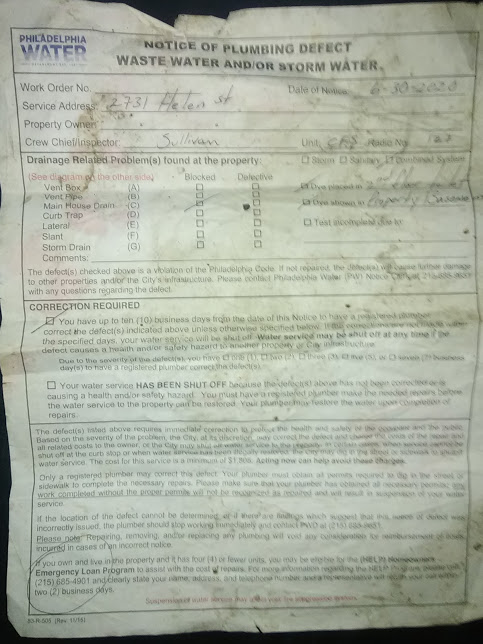 PHILADELPHIA
WATER
NOTICE OF PLUMBING DEFECT
WASTE WATER AND/OR STORM WATER
Work Order No. Date of Notice: 6-30-2020
Service Address: 2731 Helen st
Property Owner:
Crew Chief/Inspector: Sullivan Unit: CFS Radio No.
Drainage Related Problem(s) found at the property: ☐ Storm ☐ Sanitary ☐ Combined System
(See diagram on the other side) Blocked Defective
Vent Box (A) ☐ ☐ Dye placed in
Vent Pipe (B) ☐ ☐
Main House Drain (C) Dye shown in Property Basement
Curb Trap (D) ☐ ☐
Lateral (E) ☐ ☐ ☐ Test incomplete due to
Slant (F) ☐ ☐
Storm Drain (G) ☐ ☐
Comments:
The defect(s) checked above is a violation of the Philadelphia Code. If not repaired, the defect(s) will cause further damage
to other properties and/or the City's infrastructure. Please contact Philadelphia Water (PW)
with any questions regarding the defect.
CORRECTION REQUIRED
You have up to ten (10) business days from the date of this Notice to have a registered plumber
correct the defect(s) indicated above unless otherwise specified below. If the corrections are not made within
the specified days, your water service will be shut off. Water service may be shut off at any time if the
defect causes a health and/or safety hazard to another property or City infrastructure.
Due to the severity of the defect(s), you have ☐ one (1), ☐ two (2), ☐ three (3), ☐ five (5), or ☐ seven (7) business
day(s) to have a registered plumber correct the defect(s).
☐ Your water service HAS BEEN SHUT OFF because the defect(s) above has not been corrected or is
causing a health and/or safety hazard. You must have a registered plumber make the needed repairs before
the water service to the property can be restored. Your plumber may restore the water upon completion of
repairs.
The defect(s) listed above requires immediate correction to protect the health and safety of the occupant and the public.
Based on the severity of the problem, the City, at its discretion, may correct the defect and charge the costs of the repair and
all related posts to the owner, or the City may shut off water service to the property.
water service. The cost for this service is a minimum of Acting now can help avoid these charges.
Only a registered plumber may correct this defect. Your plumber must obtain all permits required to dig in the street or
sidewalk to complete the necessary repairs. Please make sure that your plumber has obtained all necessary permits; any
work completed without the proper permits will not be recognized as repaired and will result in suspension of your water
service.
If the location of the defect cannot be determined, or if there are findings which suggest that this notice of defect was
incorrectly issued, the plumber should stop working immediately and contact PWD at
Please note: Repairing, removing, and/or replacing any plumbing will void any consideration for reimbursement of costs
incurred in cases of an incorrect notice.
If you own and live in the property and it has four (4) or fewer units, you may be eligible for the (HELP) Homeowners
Emergency Loan Program to assist with the cost of repairs. For more information regarding the HELP Program, please call
(215) 685-4901 and clearly state your name, address, and telephone number and a representative will return your call within
two (2) business days.